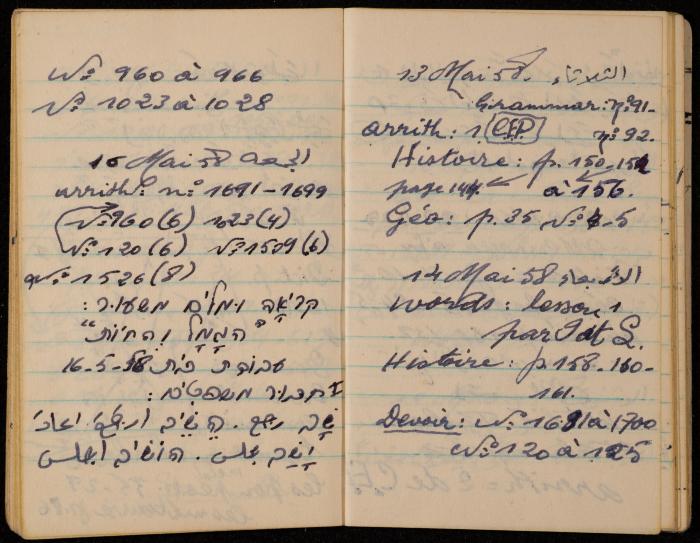 Nº 960 à 966
Nº 1023 à 1028
16 Mai 58 الجمعة
arrith: nº 1691-1699
Nº 960 (6) 1023 (4)
Nº 120 (6) Nº 1509 (6)
Nº 1526 (8)
קריאה ומלים משעור:
"הגמל והחיות"
עבודת בית: 16-5-58
I חבור משפטים:
13 Mai 58. الثلاثاء
Grammar: nº 91-
arrith: 1 C.E.P. nº 92.
Histoire: p. 150-151
page 144. à 156.
Géo: p. 35 Nº 4-5
14 Mai 58 الاربعاء
Words: lesson 1
par
Histoire: p 158-160-
161.
Devoir: Nº 1691 à 1700
Nº 120 à 125